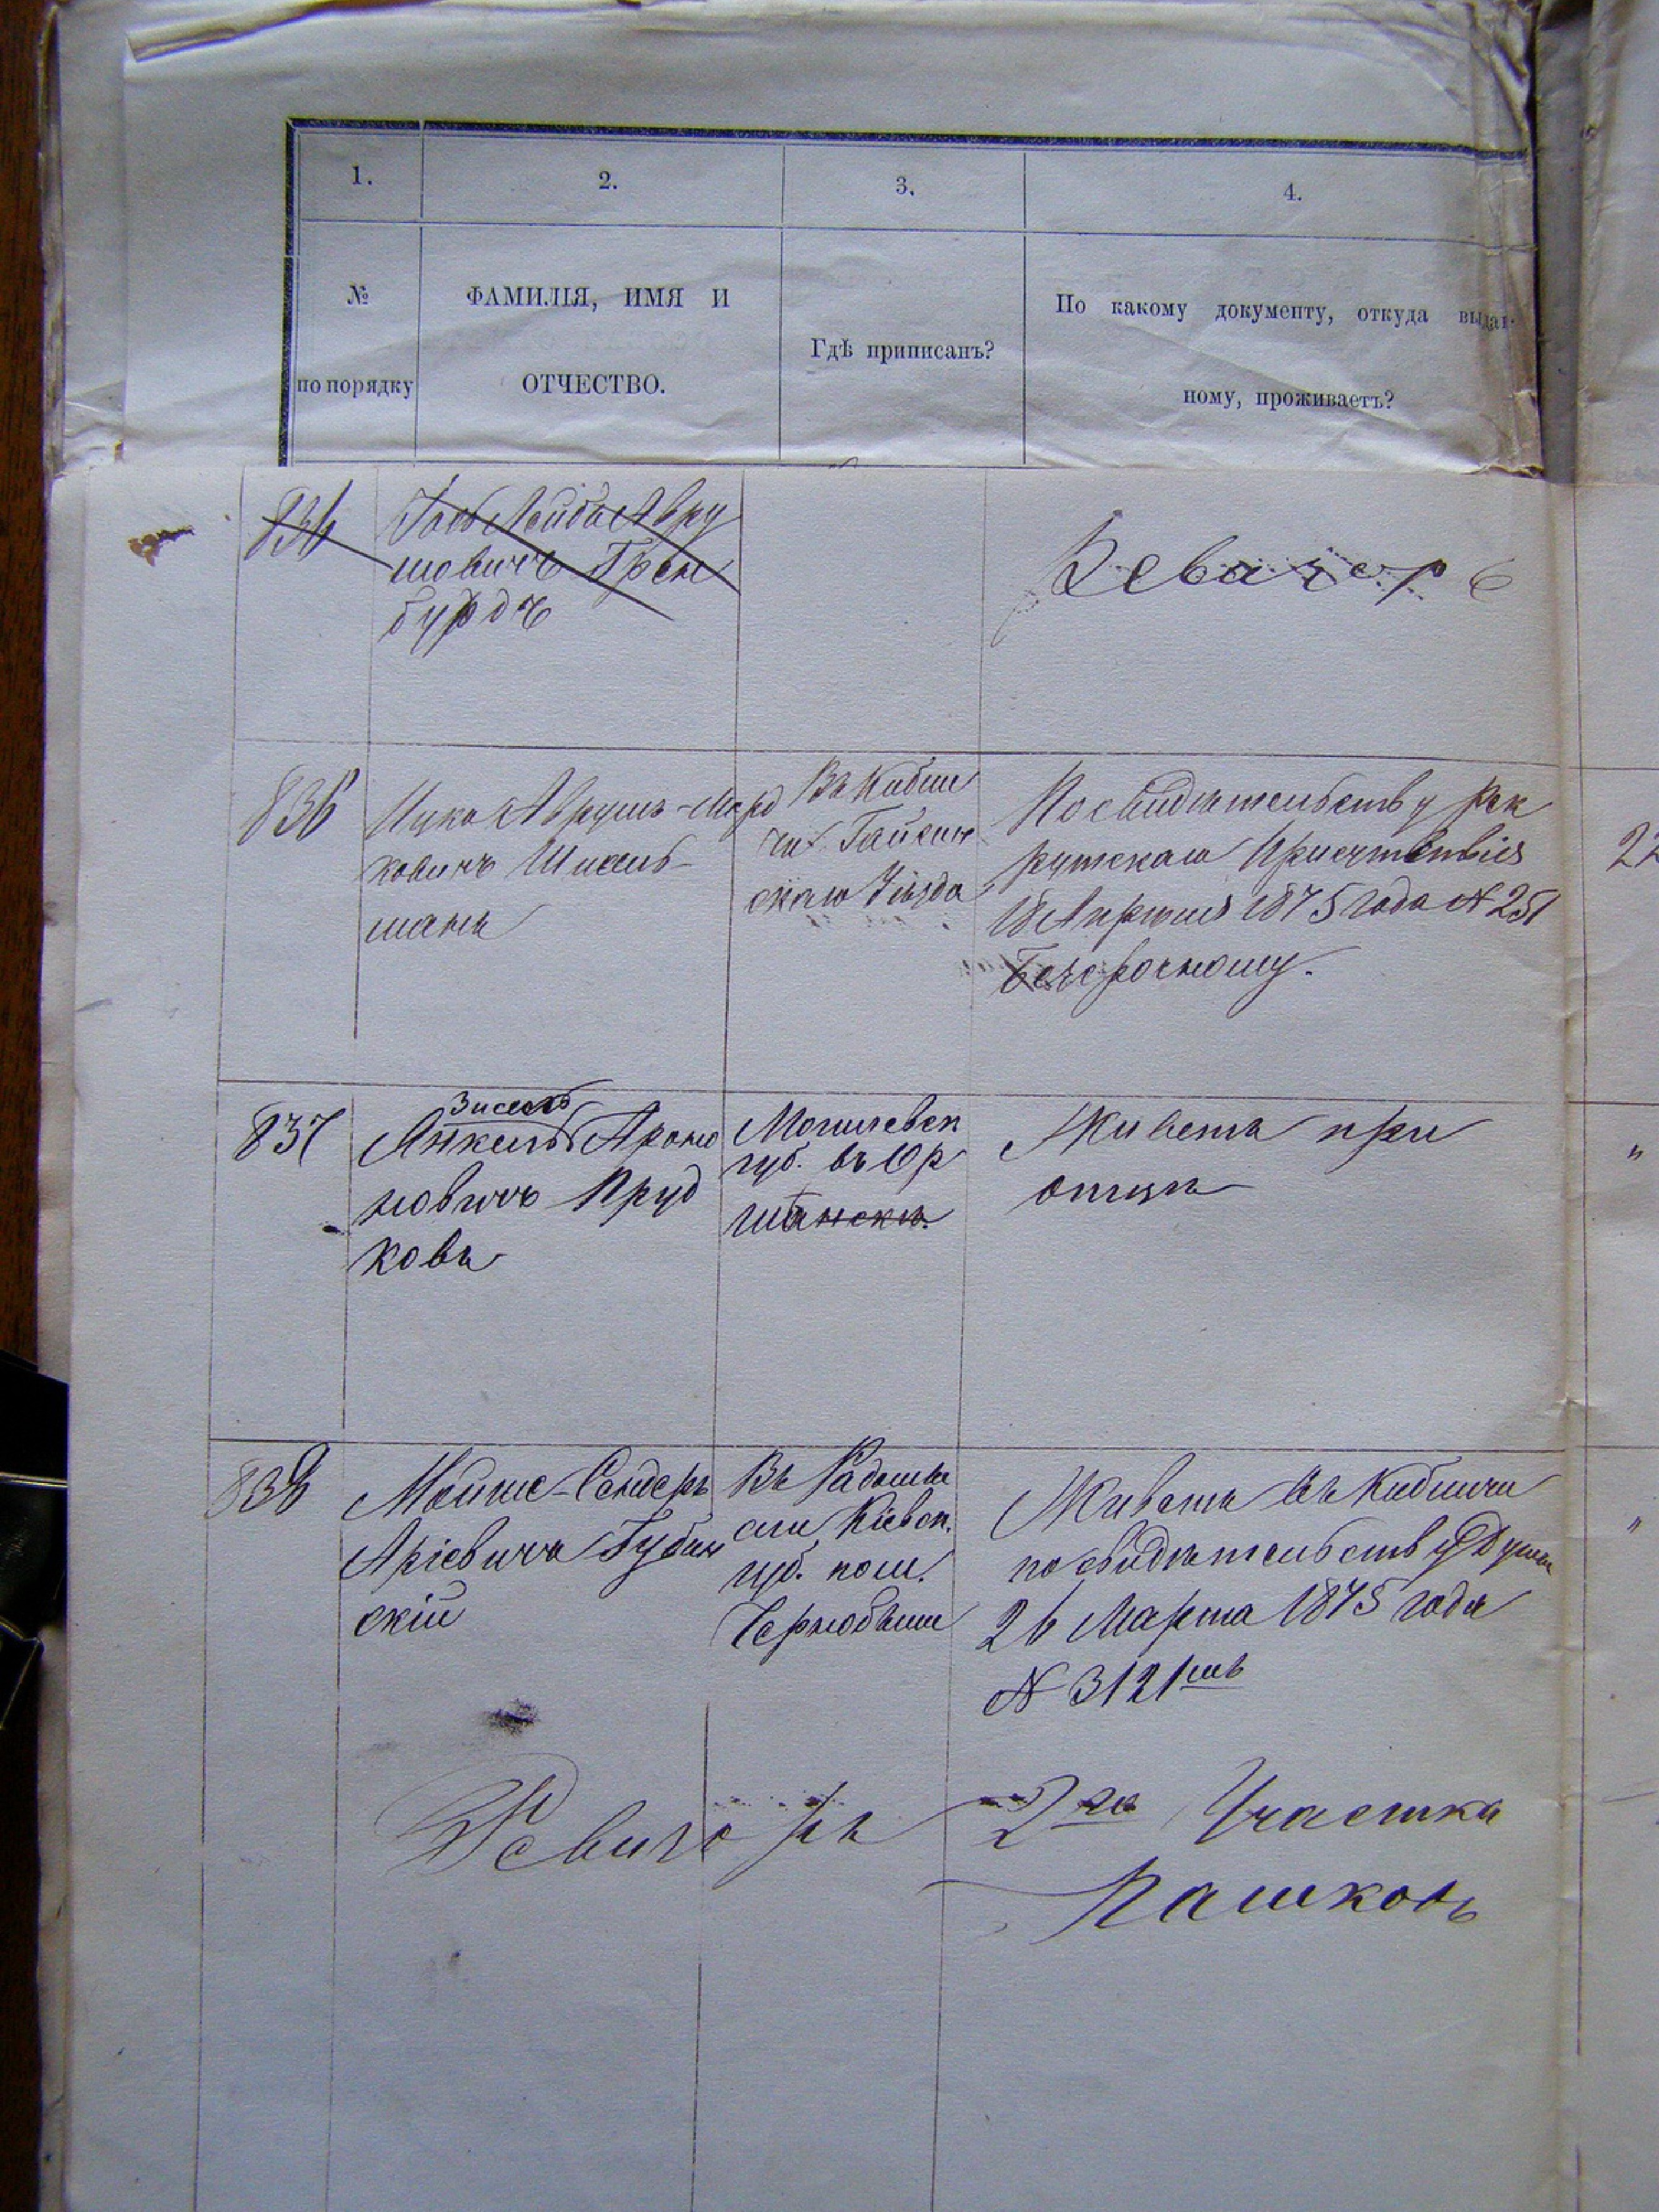 1.
2.
3.
4.
№
по порядку
ФАМИЛІЯ, ИМЯ И
ОТЧЕСТВО.
Гдѣ приписанъ?
По какому документу, откуда выдан-
ному, проживаетъ?
836
Лейба Авру
мовичъ Грен
бурдъ
836
Ицко Аврумъ-Морд
ковичъ Шиаль
манъ
Въ Кибли
чи Гайсин
скаго Уѣзда
По свидѣтельству рек
рутскаго Присутствія
18 Апрѣля 1875 года № 251
Безсрочному.
22
837
Зисель
Янкель Ароно
новичъ Пруд
ковъ
Могилевск
губ. въ Ор
шанскѣ.
Живетъ при
отцѣ
"
838
Мойше-Сендеръ
Аріевичъ Губин
скій
Въ Радомы
сли Кіевск.
губ. пош.
Чернобыли
Живетъ въ Кибличи
по свидѣтельству Думы
26 Марта 1875 года
№ 3121
"
Ревизоръ 2го Участка
Пашковъ